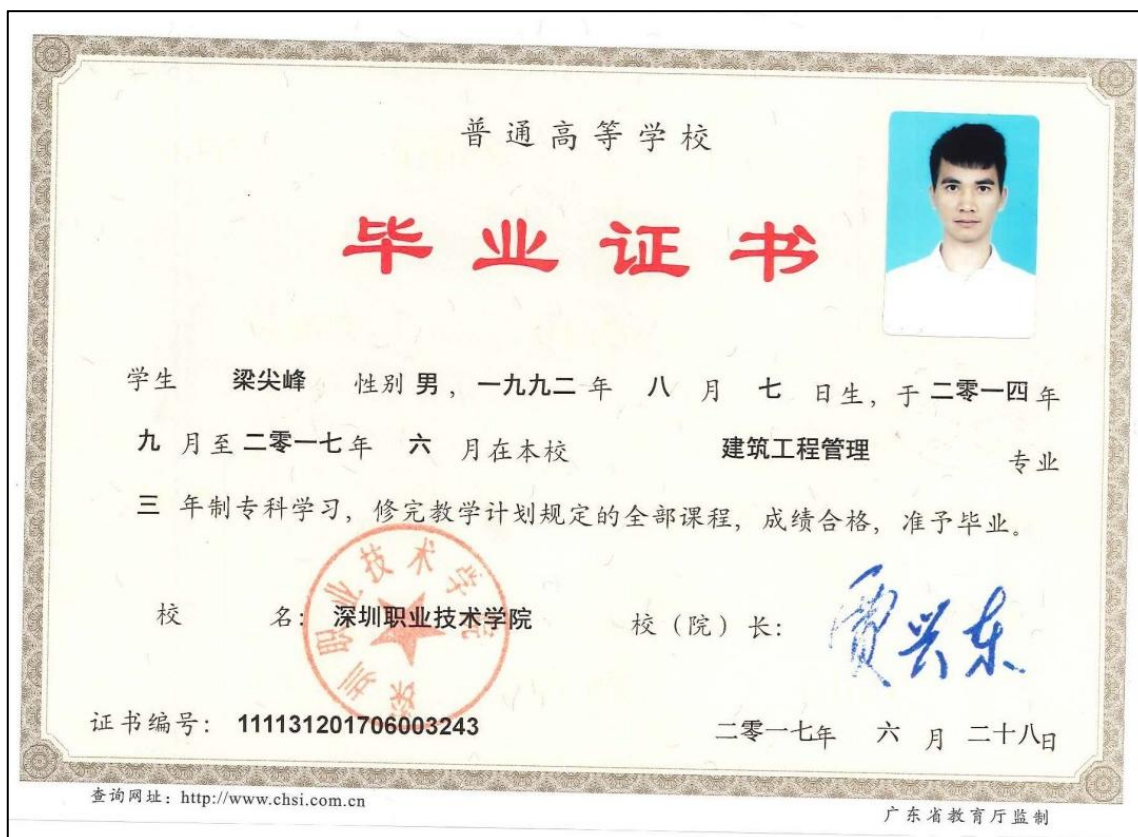 普通高等学校
毕业证书
学生 梁尖峰 性别 男，一九九二 年 八 月 七 日生，于 二零一四 年
九 月至 二零一七 年 六 月在本校 建筑工程管理 专业
三 年制专科学习，修完教学计划规定的全部课程，成绩合格，准予毕业。
校 名：深圳职业技术学院 校（院）长：贾兴东
深圳职业技术学院
证书编号：111131201706003243 二零一七年 六 月 二十八日
查询网址：http://www.chsi.com.cn 广东省教育厅监制